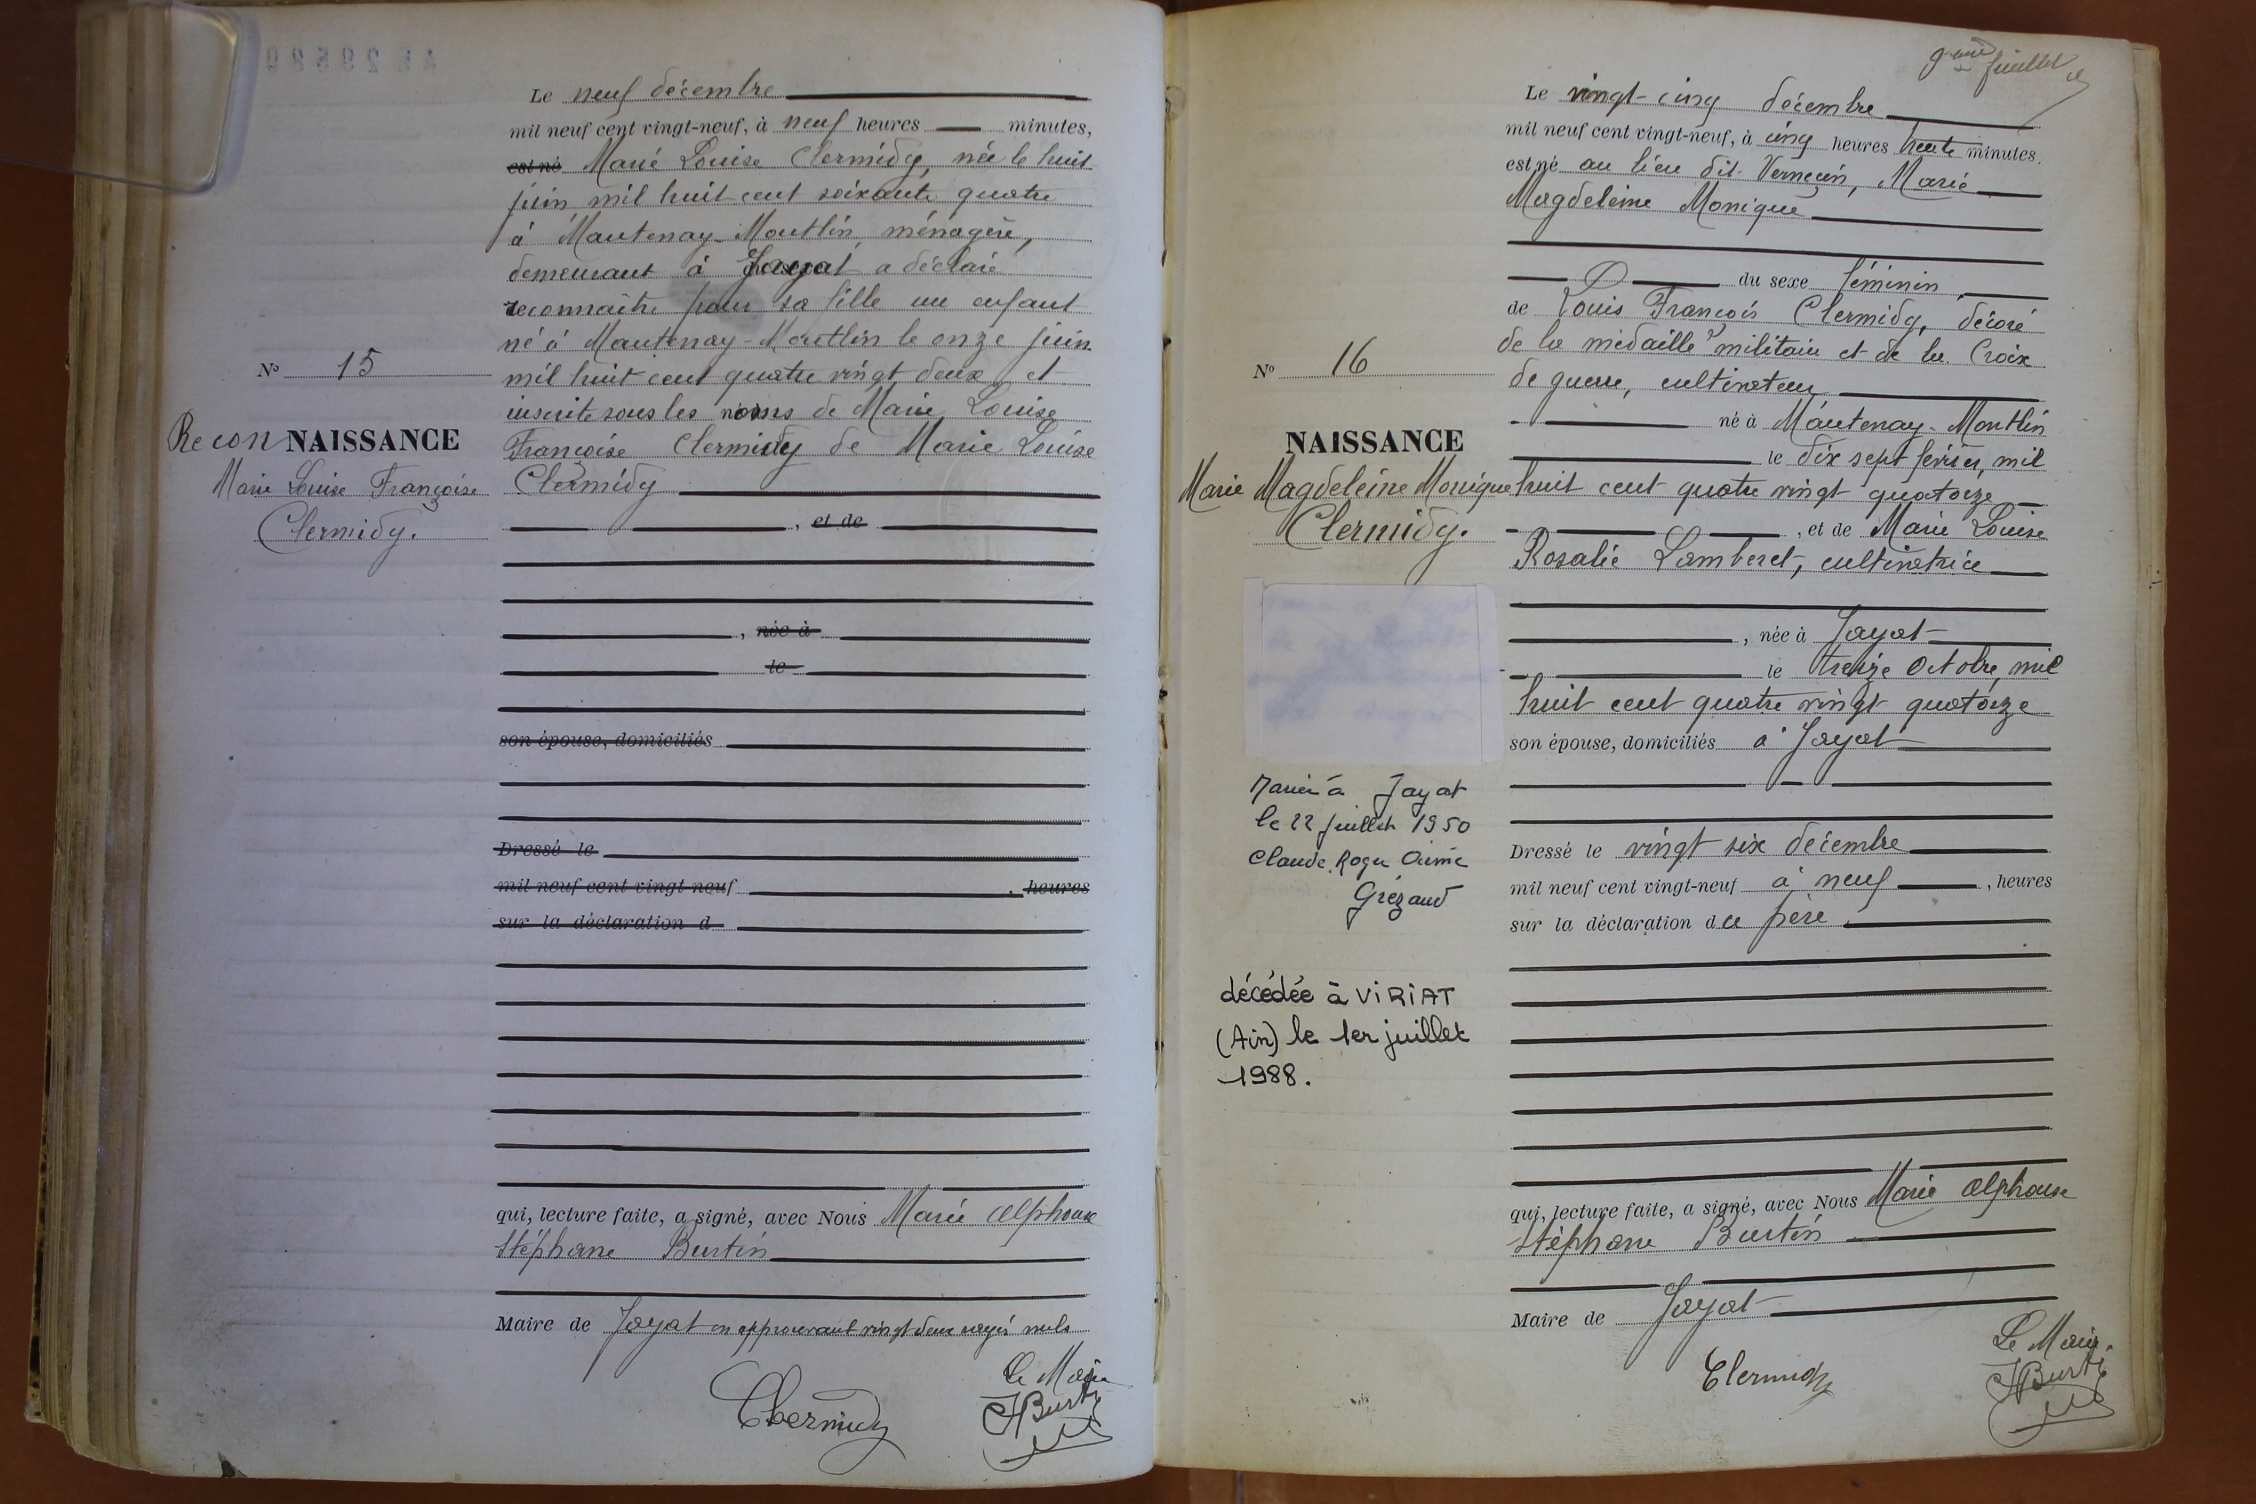 Le neuf décembre
mil neuf cent vingt-neuf, à neuf heures minutes,
est né Marie Louise Clermidy, née le huit
juin mil huit cent soixante quatre
à Mantenay-Montlin, ménagère,
demeurant à Jayat a déclaré
reconnaître pour sa fille un enfant
né à Mantenay-Montlin le onze juin
mil huit cent quatre vingt deux et
inscrite sous les noms de Marie Louise
Françoise Clermidy de Marie Louise
Clermidy
, et de
, née à
le
son épouse, domiciliés
Dressé le
mil neuf cent vingt-neuf , heures
sur la déclaration d
qui, lecture faite, a signé, avec Nous Marie Alphonse
Stéphane Burtin
Maire de Jayat en approuvant vingt deux rayés nuls
Le Maire
Clermidy
Burtin
No 15
Recon NAISSANCE
Marie Louise Françoise
Clermidy.
9eme feuillet
Le vingt-cinq décembre
mil neuf cent vingt-neuf, à cinq heures trente minutes.
est né au lieu dit Verneçin, Marie
Magdeleine Monique
du sexe féminin
de Louis François Clermidy, décoré
de la médaille militaire et de la Croix
de guerre, cultivateur
né à Mantenay-Montlin
le dix sept février, mil
huit cent quatre vingt quatorze
, et de Marie Louise
Rosalie Lamberet, cultivatrice
, née à Jayat
le treize octobre, mil
huit cent quatre vingt quatorze
son épouse, domiciliés à Jayat
Dressé le vingt six décembre
mil neuf cent vingt-neuf à neuf , heures
sur la déclaration du père
qui, lecture faite, a signé, avec Nous Marie Alphonse
Stéphane Burtin
Maire de Jayat
Le Maire
Clermidy
Burtin
No 16
NAISSANCE
Marie Magdeleine Monique
Clermidy.
Mariée à Jayat
le 22 juillet 1950
Claude Roger Aimé
Grézaud
décédée à VIRIAT
(Ain) le 1er juillet
1988.